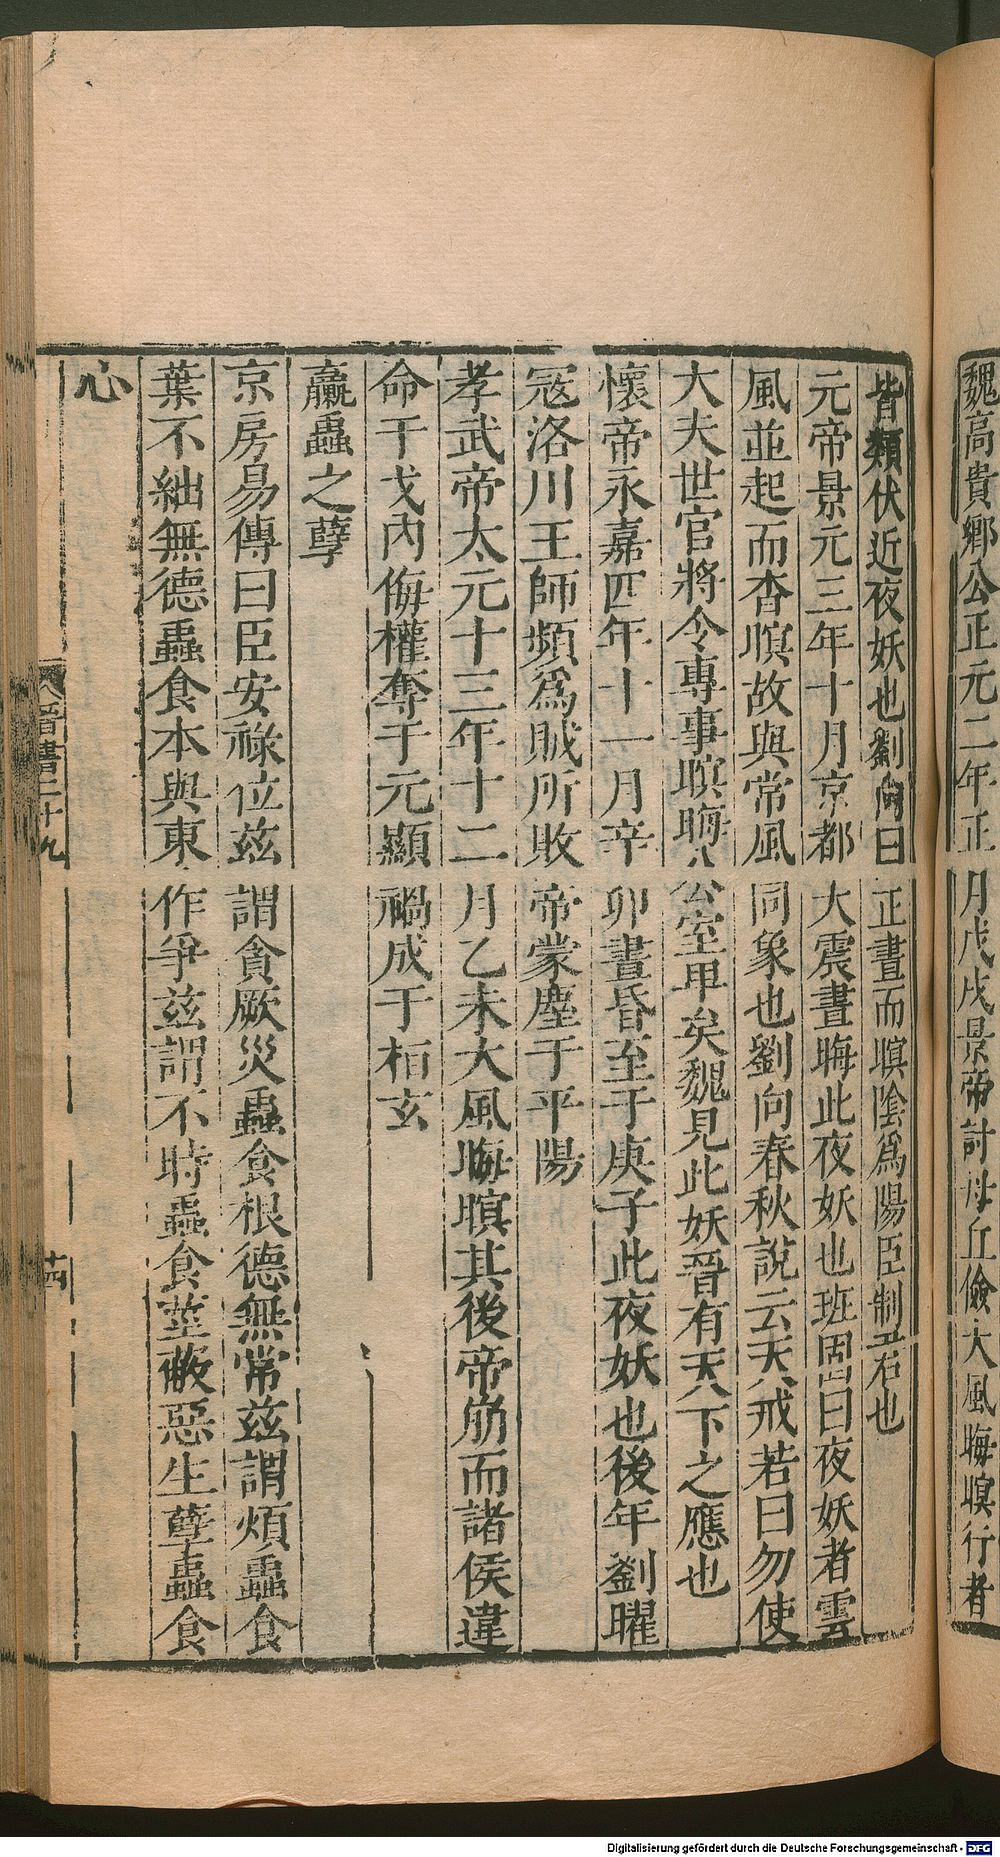 魏高貴鄉公正元二年正月戊戌景帝討毋丘儉大風晦暝行者
皆類伏近夜妖也劉向曰正晝而暝陰爲陽臣制君也
元帝景元三年十月京都大震晝晦此夜妖也班固曰夜妖者雲
風並起而杳暝故與常風同象也劉向春秋說云天戒若曰勿使
大夫世官將令專事暝晦公室卑矣魏見此妖晉有天下之應也
懷帝永嘉四年十一月辛卯晝昏至于庚子此夜妖也後年劉曜
寇洛川王師頻爲賊所敗帝蒙塵于平陽
孝武帝太元十三年十二月乙未大風晦暝其後帝崩而諸侯違
命干戈內侮權奪于元顯禍成于桓玄
蠃蟲之孽
京房易傳曰臣安祿位茲謂貪厥災蟲食根德無常茲謂煩蟲食
葉不絀無德蟲食本與東作爭茲謂不時蟲食莖蔽惡生孽蟲食
心
晉書二十九
十四
Digitalisierung gefördert durch die Deutsche Forschungsgemeinschaft - DFG